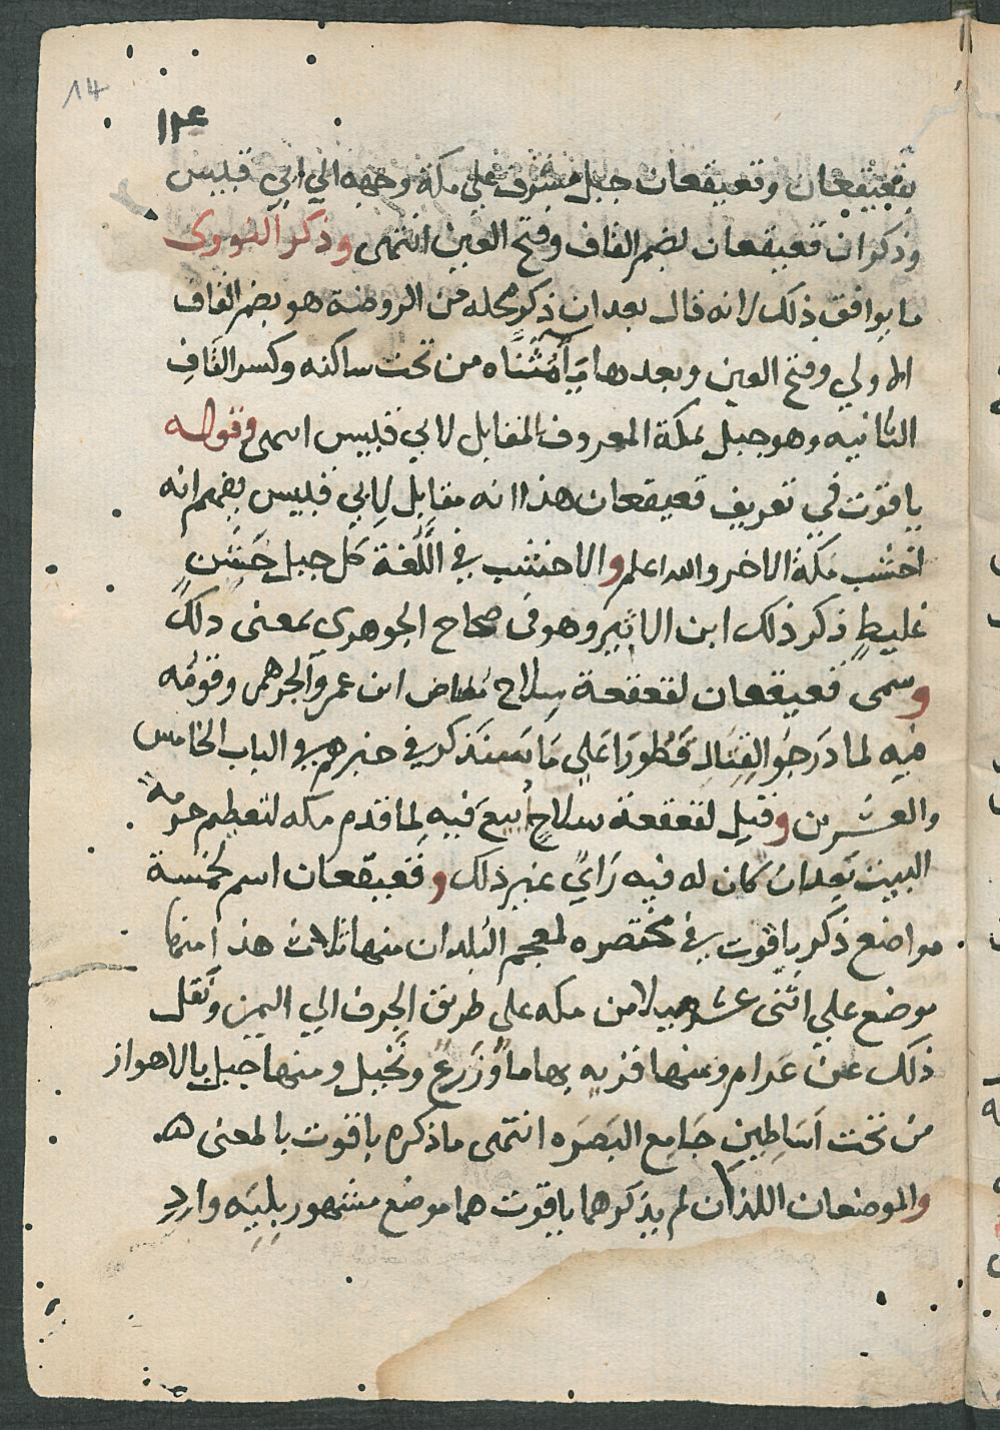 14
١٣٤
بقعيقعان وقعيقعان جبل مشرف على مكة وجهه الي ابي قبيس
وذكر ان قعيقعان بضم القاف وفتح العين انتهى وذكر النووي
ما يوافق ذلك لانه قال بعد ان ذكر محله من الروضة هو بضم القاف
الاولي وفتح العين وبعدها ياء مثناه من تحت ساكنه وكسر القاف
الثانيه وهو جبل بمكة المعروف المقابل لابي قبيس انتهى وقول
ياقوت في تعريف قعيقعان هذا انه مقابل لابي قبيس يفهم انه
اخشب مكة الاخر والله اعلم والاخشب في اللغة كل جبل خشن
غليظ ذكر ذلك ابن الاثير وهو في صحاح الجوهري بمعنى ذلك
وسمى قعيقعان لقعقعة سلاح مضاض ابن عمرو الجرهمي وقومه
فيه لما خرجو القتال قطورا على ما سنذكر في خبرهم في الباب الخامس
والعشرين وقيل لقعقعة سلاح تبع فيه لما قدم مكه لتعظيم حرمة
البيت بعد ان كان له فيه راي غير ذلك وقعيقعان اسم لخمسة
مواضع ذكر ياقوت في مختصره لمعجم البلدان منها ثلاث هذا منها
موضع علي اثنى عشر ميلا من مكه على طريق الجرف الي اليمن ونقل
ذلك عن عرام ومنها قريه بها ما وزرع ونخيل ومنها جبل بالاهواز
من تحت اساطين جامع البصره انتهى ما ذكره ياقوت بالمعنى
والموضعان اللذان لم يذكرهما ياقوت هما موضع مشهور بليه وارد